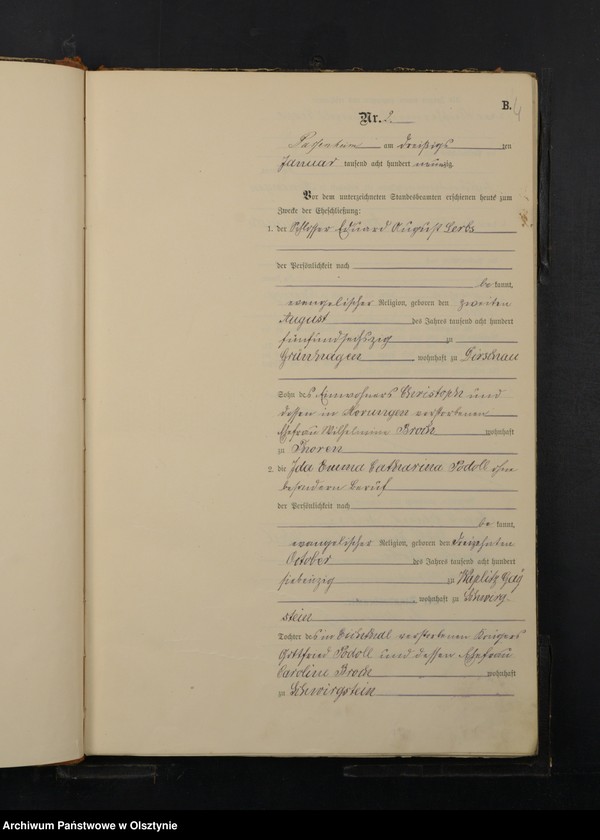 B. 4
Nr. 2.
am dreißigs ten
Januar tausend acht hundert neunzig.
Vor dem unterzeichneten Standesbeamten erschienen heute zum
Zwecke der Eheschließung:
1. der Schlosser Eduard August
der Persönlichkeit nach
be kannt,
evangelischer Religion, geboren den zweiten
August des Jahres tausend acht hundert
fünfundsechszig zu
Grünhagen, wohnhaft zu Dirschau
Sohn des Einwohners Christoph und
dessen in Morungen verstorbenen
Ehefrau Wilhelmine Broch wohnhaft
zu Thoren
2. die Ida Emma Catharina Podoll ohne
besondern Beruf
der Persönlichkeit nach
be kannt,
evangelischer Religion, geboren den dreizehnten
October des Jahres tausend acht hundert
siebenzig zu Waplitz
, wohnhaft zu Schwirg-
stein
Tochter des in verstorbenen Krügers
Gottfried Podoll und dessen Ehefrau
Caroline Broch wohnhaft
zu Schwirgstein
Archiwum Państwowe w Olsztynie